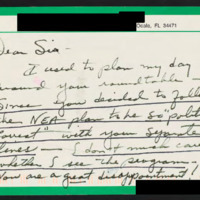 Ocala, FL 34471
Dear Sir -
I used to plan my day
around your roundtable
Since you decided to follow
the NEA plan to be so "politically
correct" with your separate
times - I don't much care
whether I see the program,
You are a great disappointment!